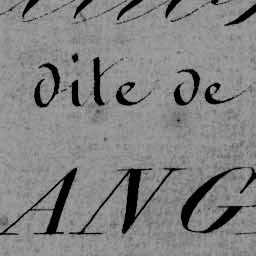 dite de
ANG